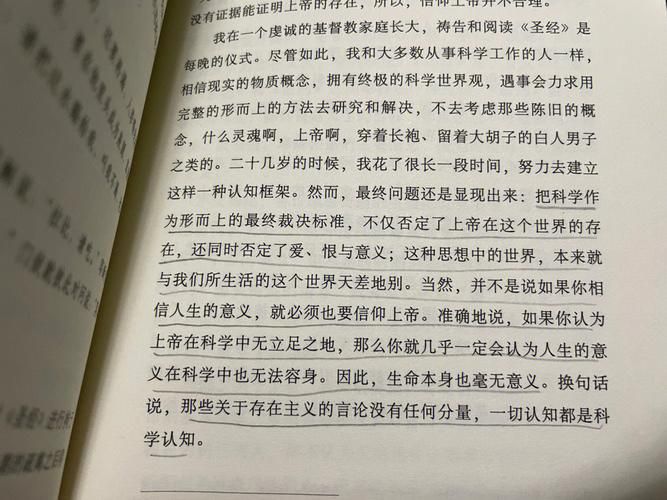 没有证据能证明上帝的存在，所以，信仰上帝并不合理。
我在一个虔诚的基督教家庭长大，祷告和阅读《圣经》是
每晚的仪式。尽管如此，我和大多数从事科学工作的人一样，
相信现实的物质概念，拥有终极的科学世界观，遇事会力求用
完整的形而上的方法去研究和解决，不去考虑那些陈旧的概
念，什么灵魂啊，上帝啊，穿着长袍、留着大胡子的白人男子
之类的。二十几岁的时候，我花了很长一段时间，努力去建立
这样一种认知框架。然而，最终问题还是显现出来：把科学作
为形而上的最终裁决标准，不仅否定了上帝在这个世界的存
在，还同时否定了爱、恨与意义；这种思想中的世界，本来就
与我们所生活的这个世界天差地别。当然，并不是说如果你相
信人生的意义，就必须也要信仰上帝。准确地说，如果你认为
上帝在科学中无立足之地，那么你就几乎一定会认为人生的意
义在科学中也无法容身。因此，生命本身也毫无意义。换句话
说，那些关于存在主义的言论没有任何分量，一切认知都是科
学认知。